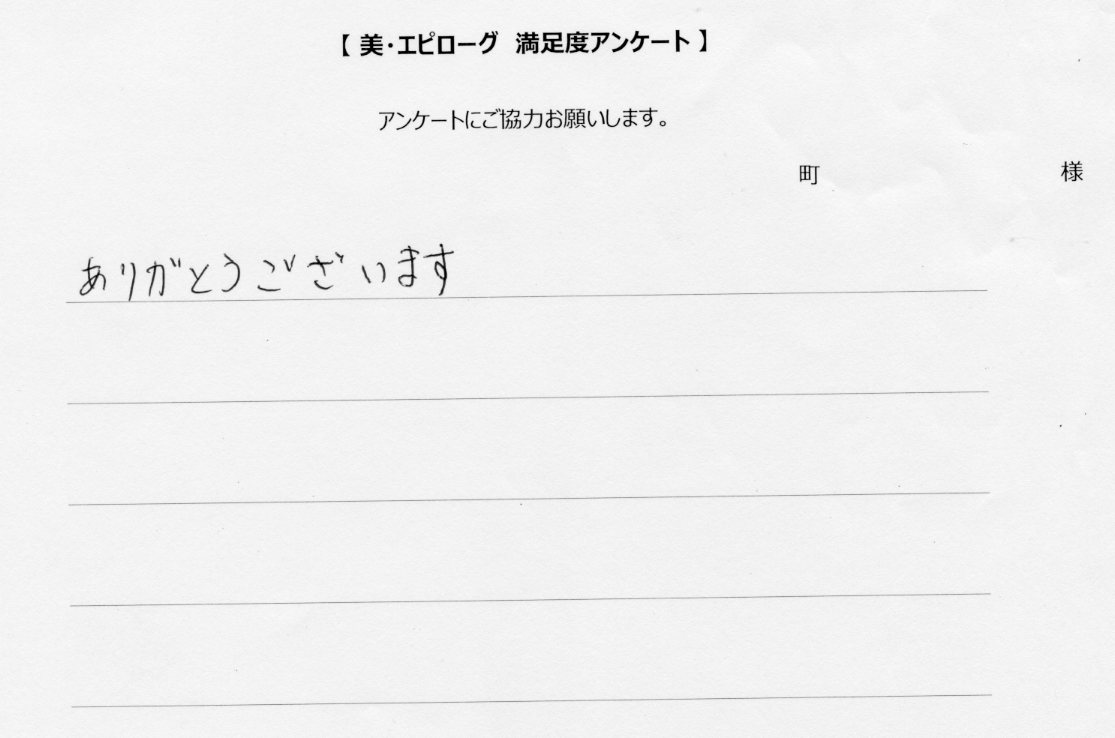 【 美・エピローグ 満足度アンケート 】
アンケートにご協力お願いします。
町 様
ありがとうございます